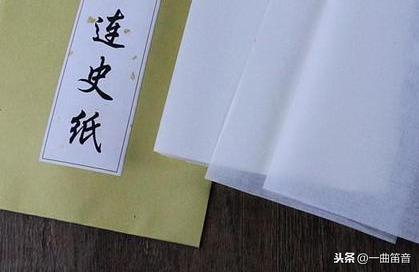 连史纸
头条 @一曲笛音